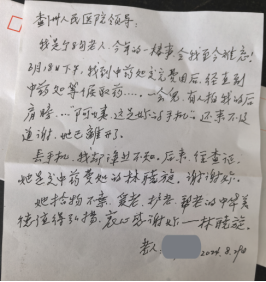 彭州人民医院领导：
我是个8旬老人，今年的一桩事令我至今难忘！
3月18日下午，我到中药处交完费用后，径直到
中药处等候取药……，一会儿，有人拍我的后
肩膀……"阿姨，这是你的手机"。还来不及
道谢，她已离开了。
丢手机，我却浑然不知。后来，经查证，
她是交中药费处的林晓旋。谢谢你。
她拾物不昧，爱老、护老、帮老的中华美
德值得弘扬。衷心感谢你——林晓旋。
老人
2024.3.29日